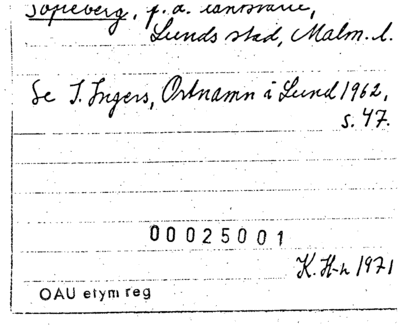 Sofieberg, f. d.
Lunds stad, Malm. l.
Se I. Ingers, Ortnamn i Lund 1962,
s. 47.
00025001
K. H-n 1971
OAU etym reg